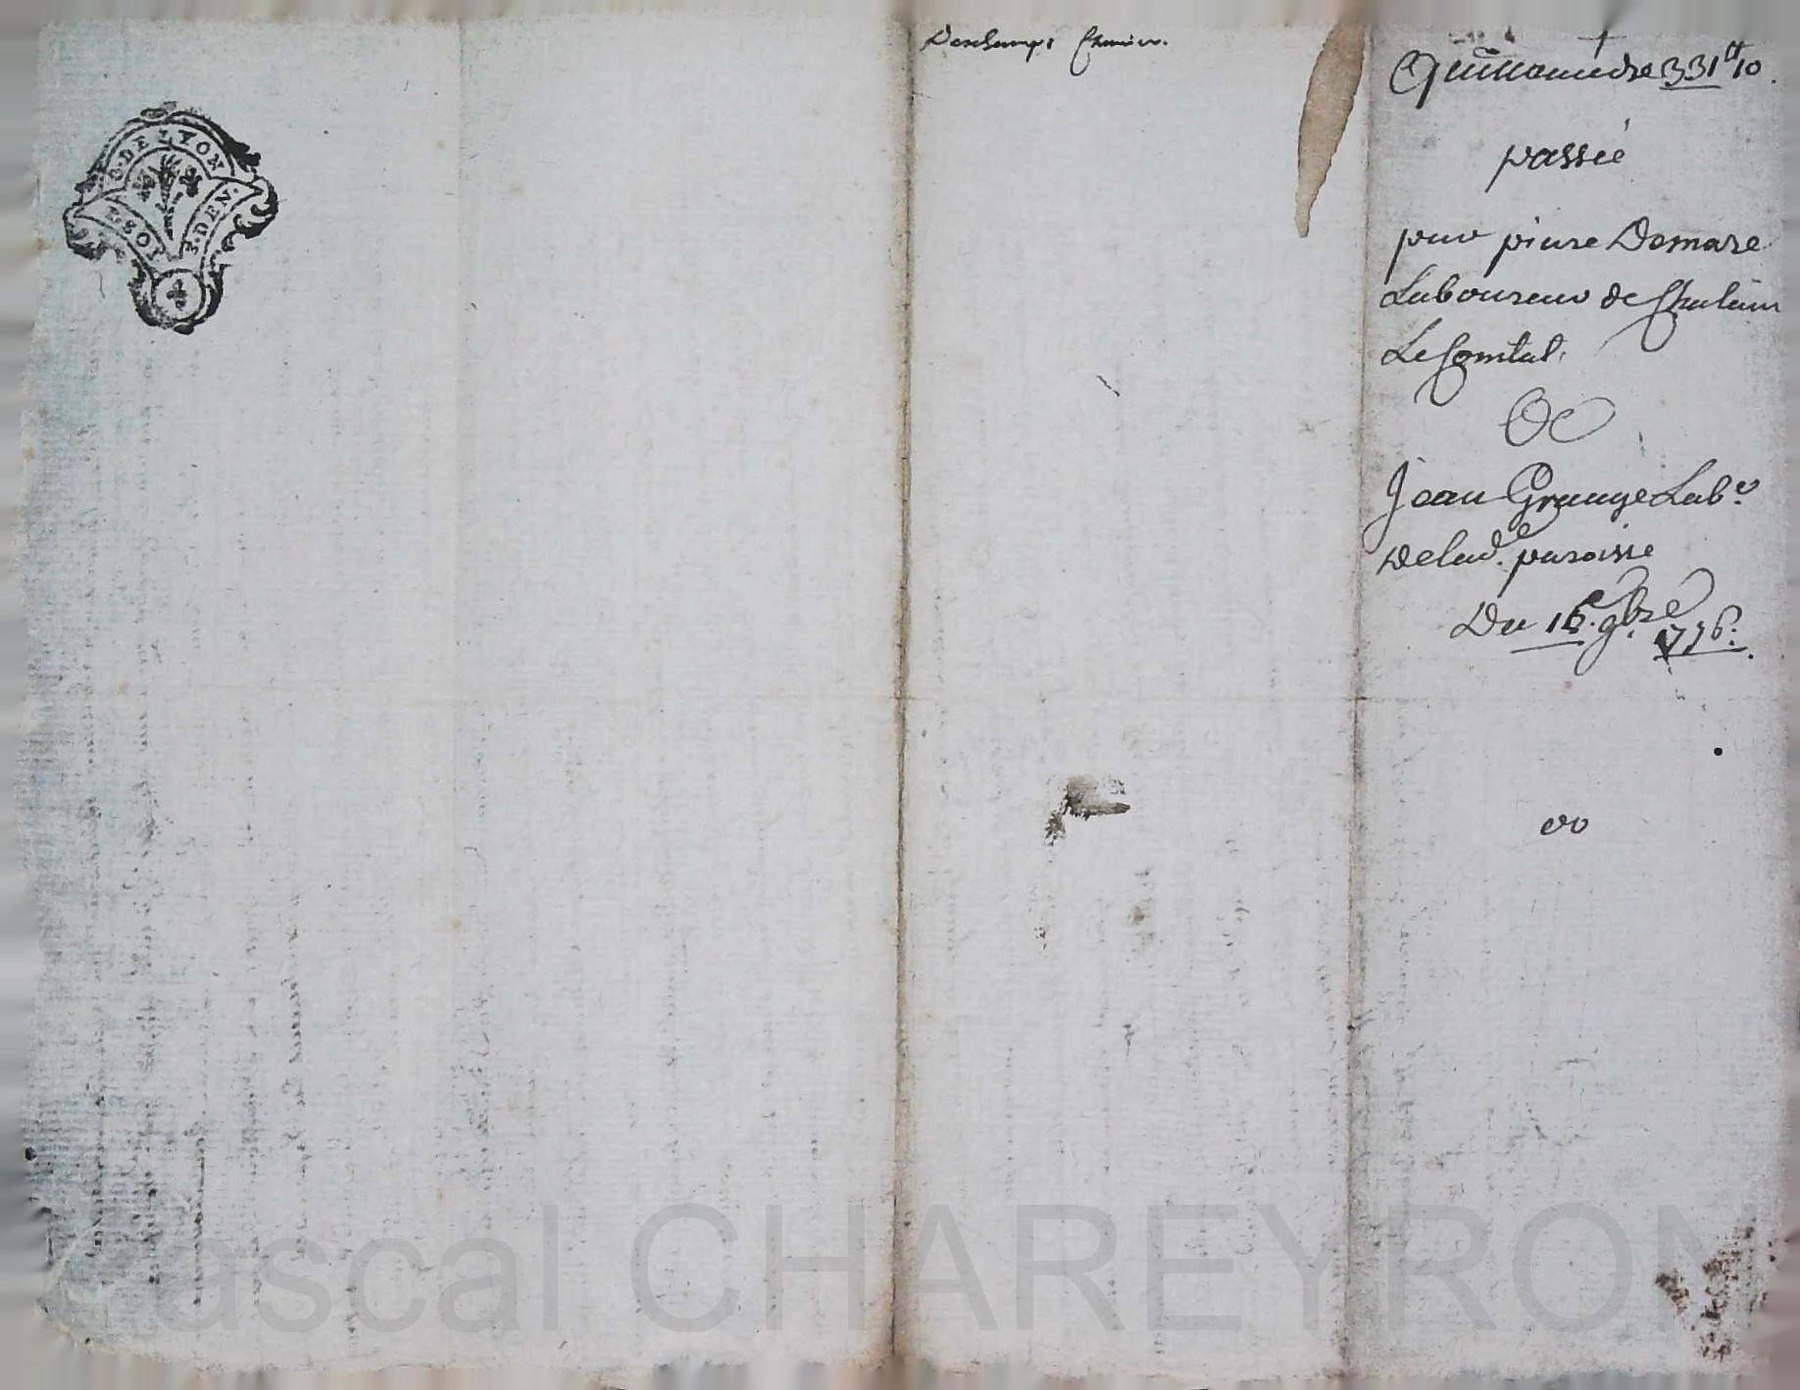 G. DE LYON
I. SOL 3. DEN.
Deschamps
Quittance de 331tt 10
passée
pour pierre Domare
Laboureur de Chalain
Le Comtal
De
Jean Grange Labr
De lade paroisse
Du 15 9bre 1776
Pascal CHAREYRON